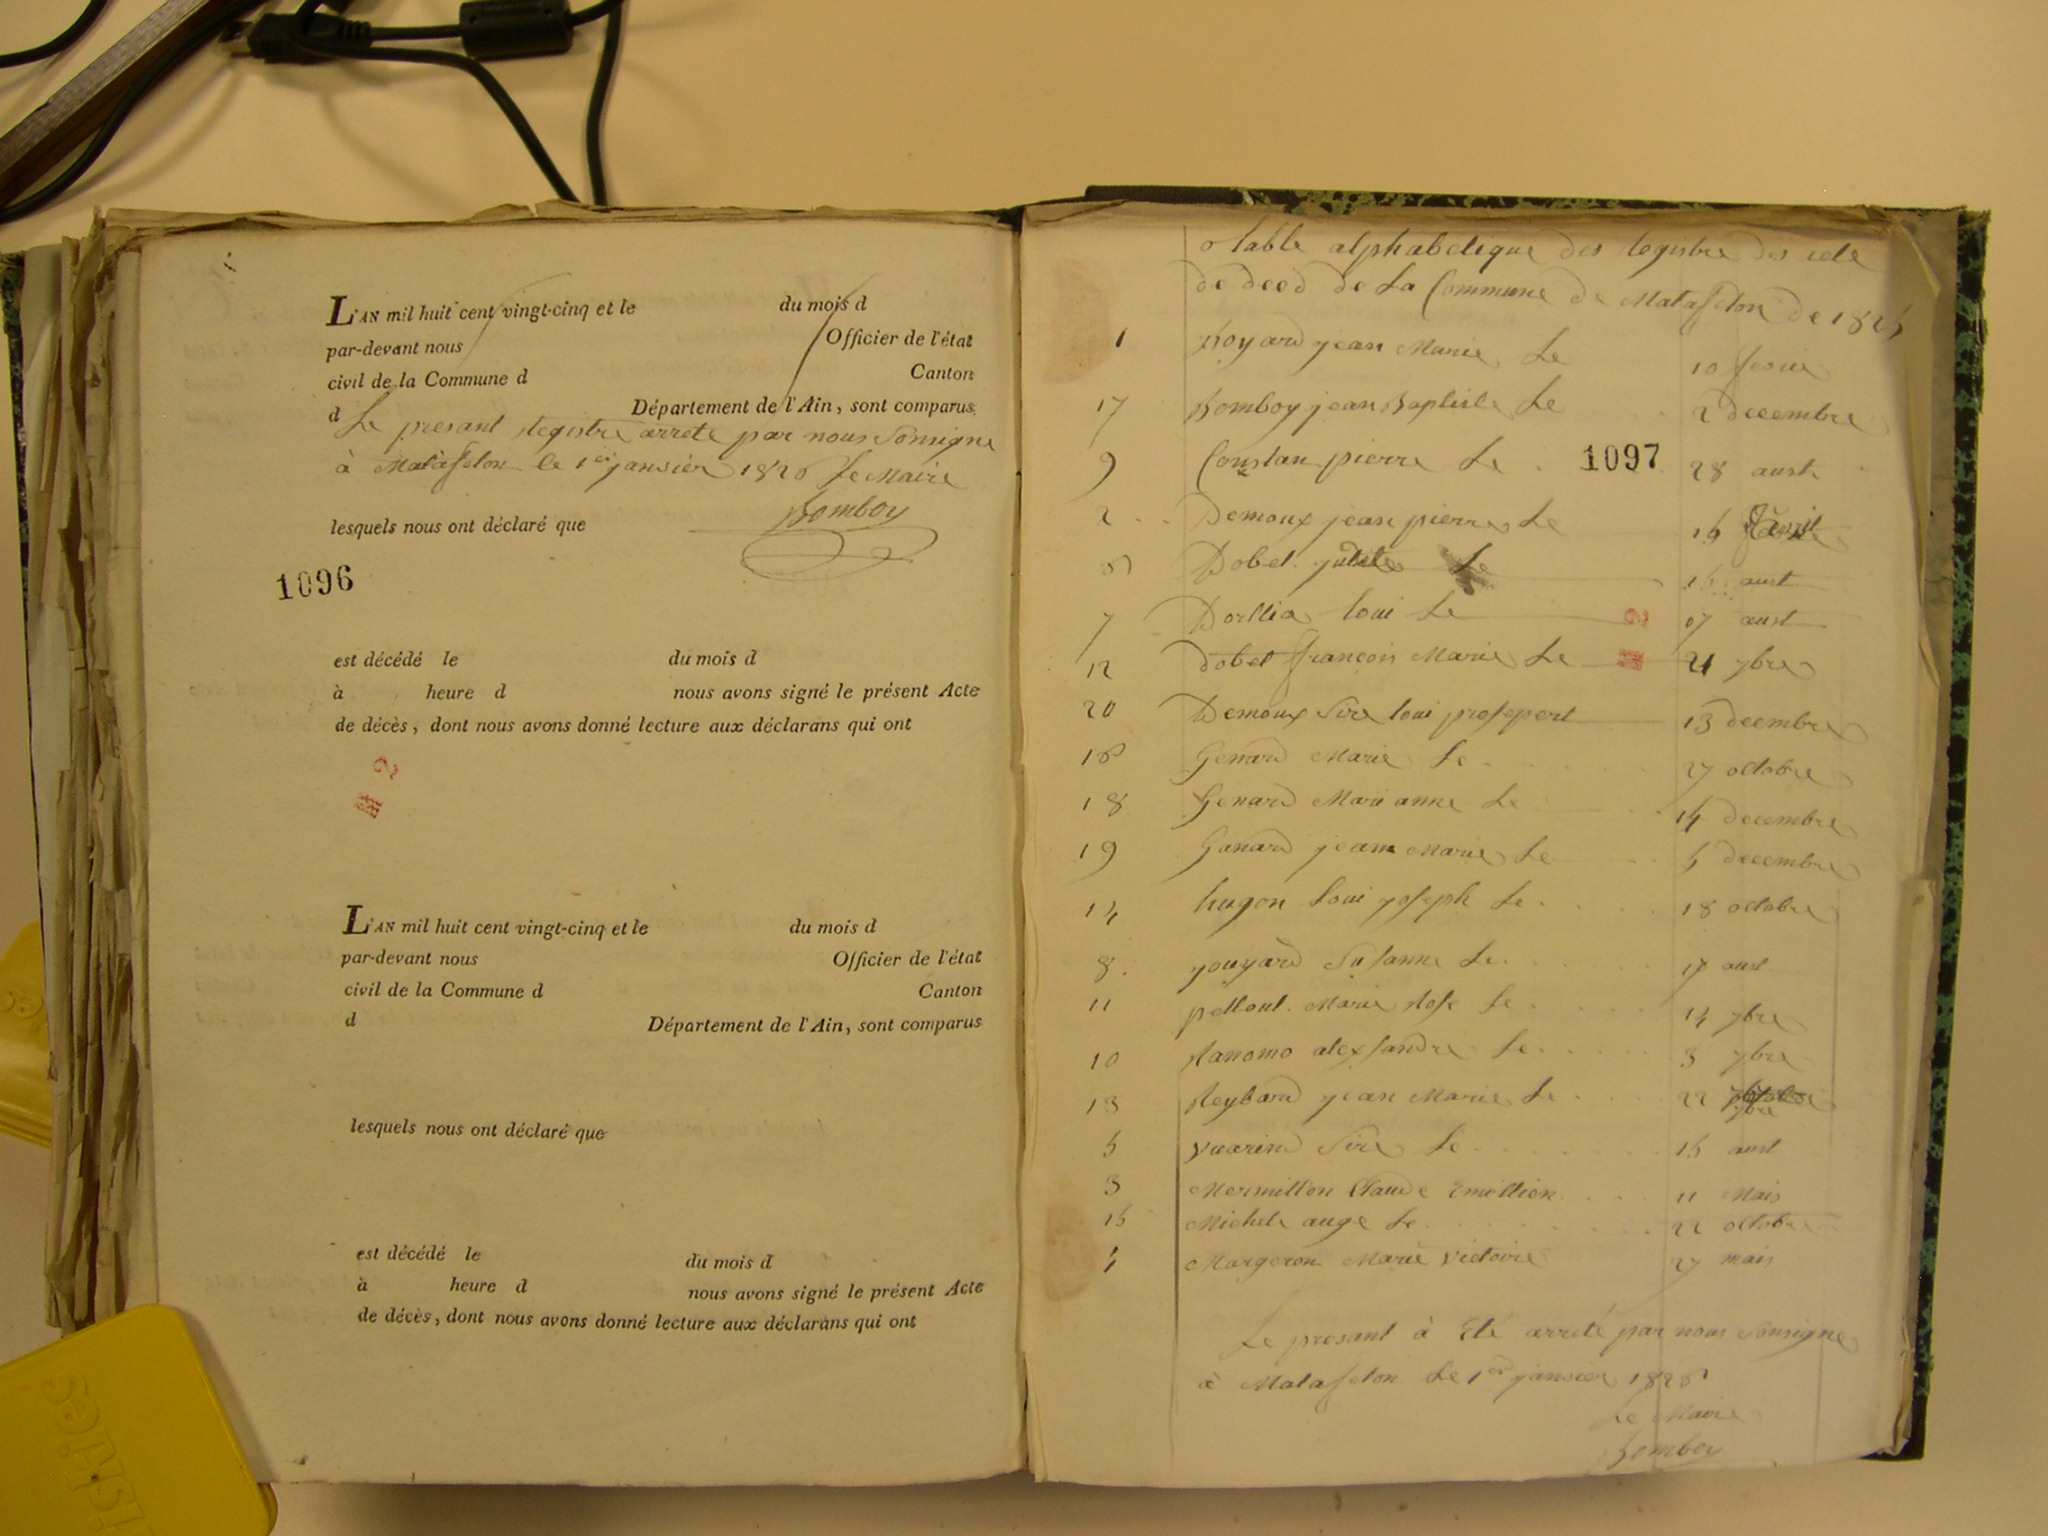 L'AN mil huit cent vingt-cinq et le du mois d
par-devant nous Officier de l'état
civil de la Commune d Canton
d Département de l'Ain, sont comparus
Le presant registre arrete par nous Sousigne
à Matafelon le 1er janvier 1826 le Maire
Bomboy
lesquels nous ont déclaré que
1096
est décédé le du mois d
à heure d nous avons signé le présent Acte
de décès, dont nous avons donné lecture aux déclarans qui ont
L'AN mil huit cent vingt-cinq et le du mois d
par-devant nous Officier de l'état
civil de la Commune d Canton
d Département de l'Ain, sont comparus
lesquels nous ont déclaré que
est décédé le du mois d
à heure d nous avons signé le présent Acte
de décès, dont nous avons donné lecture aux déclarans qui ont
table alphabetique des registre des
de de La Commune de Matafelon de 1825
1 Boyard jean Marie Le 10
17 Bomboy jean Baptiste Le 2 decembre
9 Constan pierre Le 28 aust
1097
2 Demoux jean pierre Le 15 avril
Dobet Le 15 aust
7 loui Le 07 aust
12 dobet françois Marie Le 21 7bre
20 Demoux loui 13 decembre
16 Genard Marie Le 27 octobre
18 Genard Marianne Le 14 decembre
19 Ganard jean Marie Le 5 decembre
14 hugon loui joseph Le 18 octobre
8 jouyard Susanne Le 17 aust
11 Marie Rose Le 14 7bre
10 Ranomo alexsandre Le 3 7bre
13 Reybard jean Marie Le 22 7bre
5 Le 15 aust
3 Mermillon Claude Emillien 11 Mais
15 Michele auge Le 22 octobre
4 Margeron Marie victoire 27 mais
Le presant à Eté arreté par nous Sousigne
à Matafelon Le 1er janvier 1826
Le Maire
Bomboy